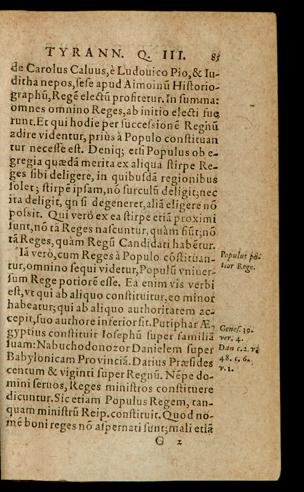 TYRANN. Q. III. 85
de Carolus Caluus, è Ludouico Pio, & Iu-
ditha nepos, sese apud Aimoinū Historio-
graphū, Regē electū profitetur. In summa:
omnes omnino Reges, ab initio electi fue
runt. Et qui hodie per successionē Regnū
adire videntur, priùs à Populo constituan
tur necesse est. Deniq; etsi Populus ob e-
gregia quædā merita ex aliqua stirpe Re-
ges sibi deligere, in quibusdā regionibus
solet; stirpē ipsam, nō surculū deligit; nec
ita deligit, qn si degeneret, aliā eligere nō
possit. Qui verò ex ea stirpe etiā proximi
sunt, nō tā Reges nascuntur, quàm fiūt; nō
tā Reges, quàm Regū Candidati habētur.
Iā verò, cum Reges à Populo cōstituan-
tur, omnino sequi videtur, Populū vniuer-
sum Rege potiorē esse. Ea enim vis verbi
est, vt qui ab aliquo constituitur, eo minor
habeatur; qui ab aliquo authoritatem ac-
cepit, suo authore inferior sit. Putiphar Æ-
gyptius constituit Iosephū super familiā
suam: Nabuchodonozor Danielem super
Babylonicam Prouinciā. Darius Præsides
centum & viginti super Regnū. Nēpe do-
mini seruos, Reges ministros constituere
dicuntur. Sic etiam Populus Regem, tan-
quam ministrū Reip. constituit. Quod no-
mē boni reges nō aspernati sunt; mali etiā
G 2
Populus po-
tior Rege.
Genes. 39.
ver. 4.
Dan c. 2. v.
48. c. 6.
v. 1.